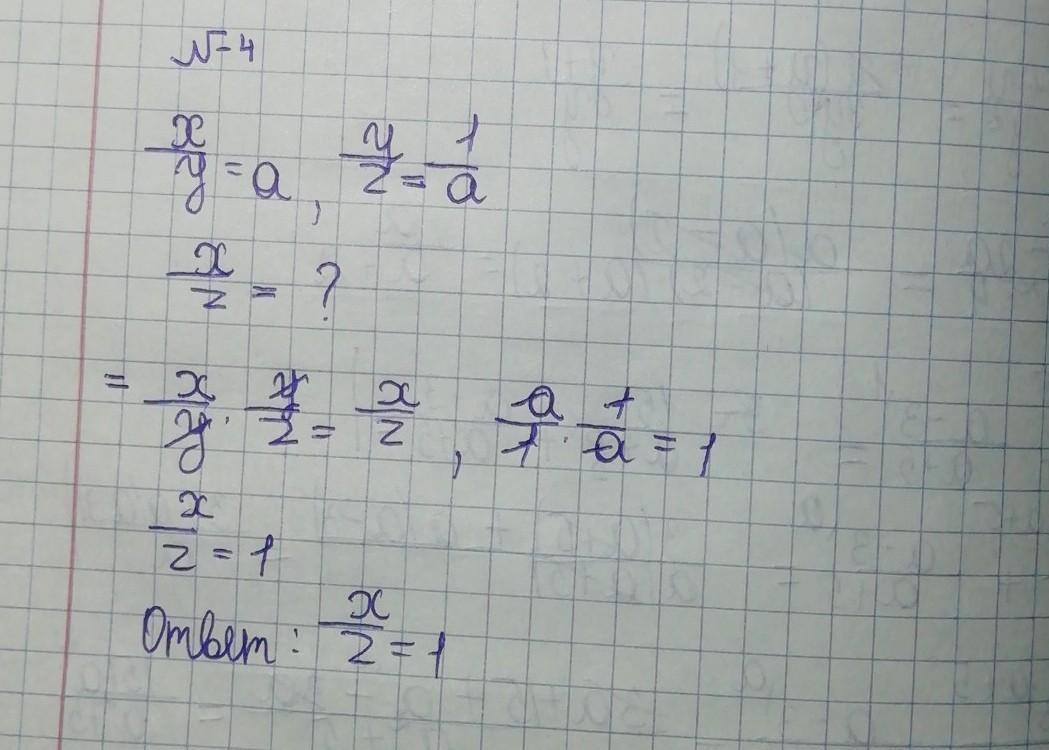 №4
x/y = a, y/z = 1/a
x/z = ?
= x/y · y/z = x/z, a/1 · 1/a = 1
x/z = 1
Ответ: x/z = 1